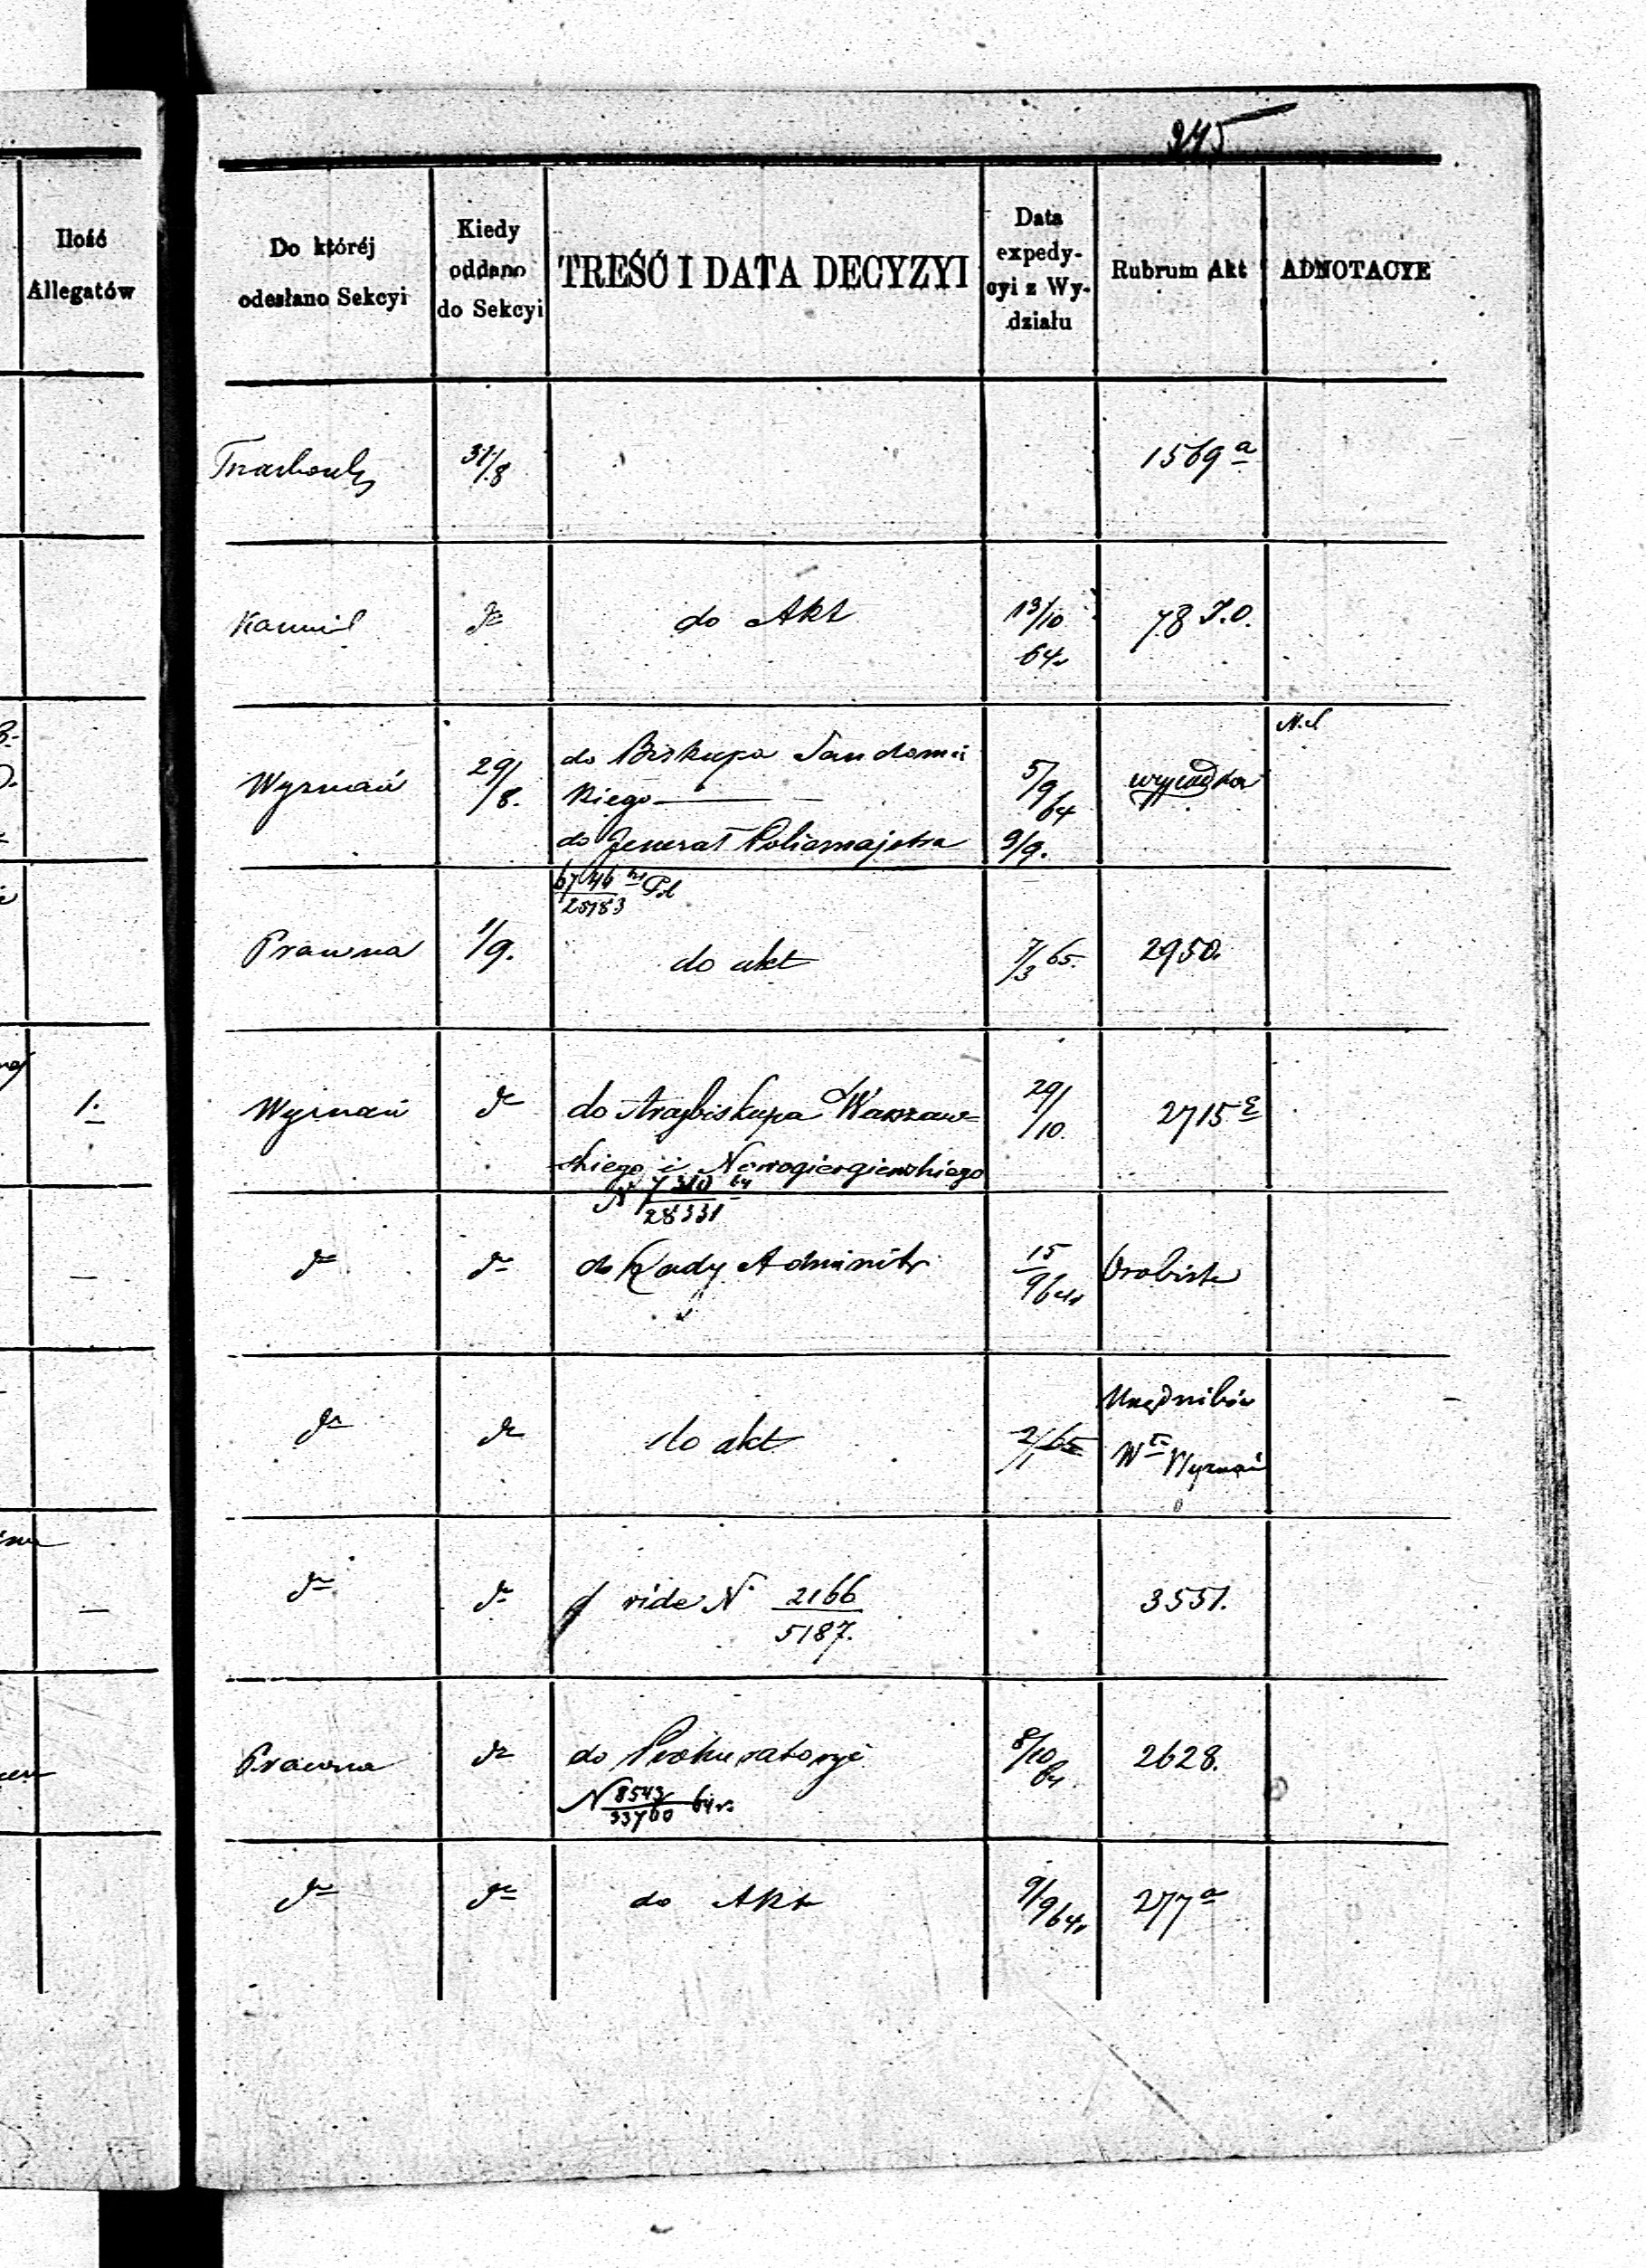 345
Ilość
Allegatów
Do któréj
odesłano Sekcyi
Kiedy
oddano
do Sekcyi
TREŚĆ I DATA DECYZYI
Data
expedy-
cyi z Wy-
działu
Rubrum Akt
ADNOTACYE
31/8
1569 a
do Akt
13/10
64r
78
Wyznań
29/8.
do Biskupa Sandomi
kiego
5/9
64
do Jenerał Policmajstra
9/9.
Prawna
1/9.
do akt
7/3 65.
2950.
1.
Wyznań
do
do Arcybiskupa Warszaw=
skiego i Nowogiergiewskiego
29/10.
2715
N 7310 64
28331
do
do
do Rady Administr
15
9 64r
Osobiste
do
do
do akt
2/1 65
Urzędników
Wu Wyznań
do
do
vide N. 2166
5187.
3551.
Prawna
do
do Prokuratoryi
8/10
64
2628.
N 8543 64r.
33760
do
do
do Akt
9/9 64r
277 a